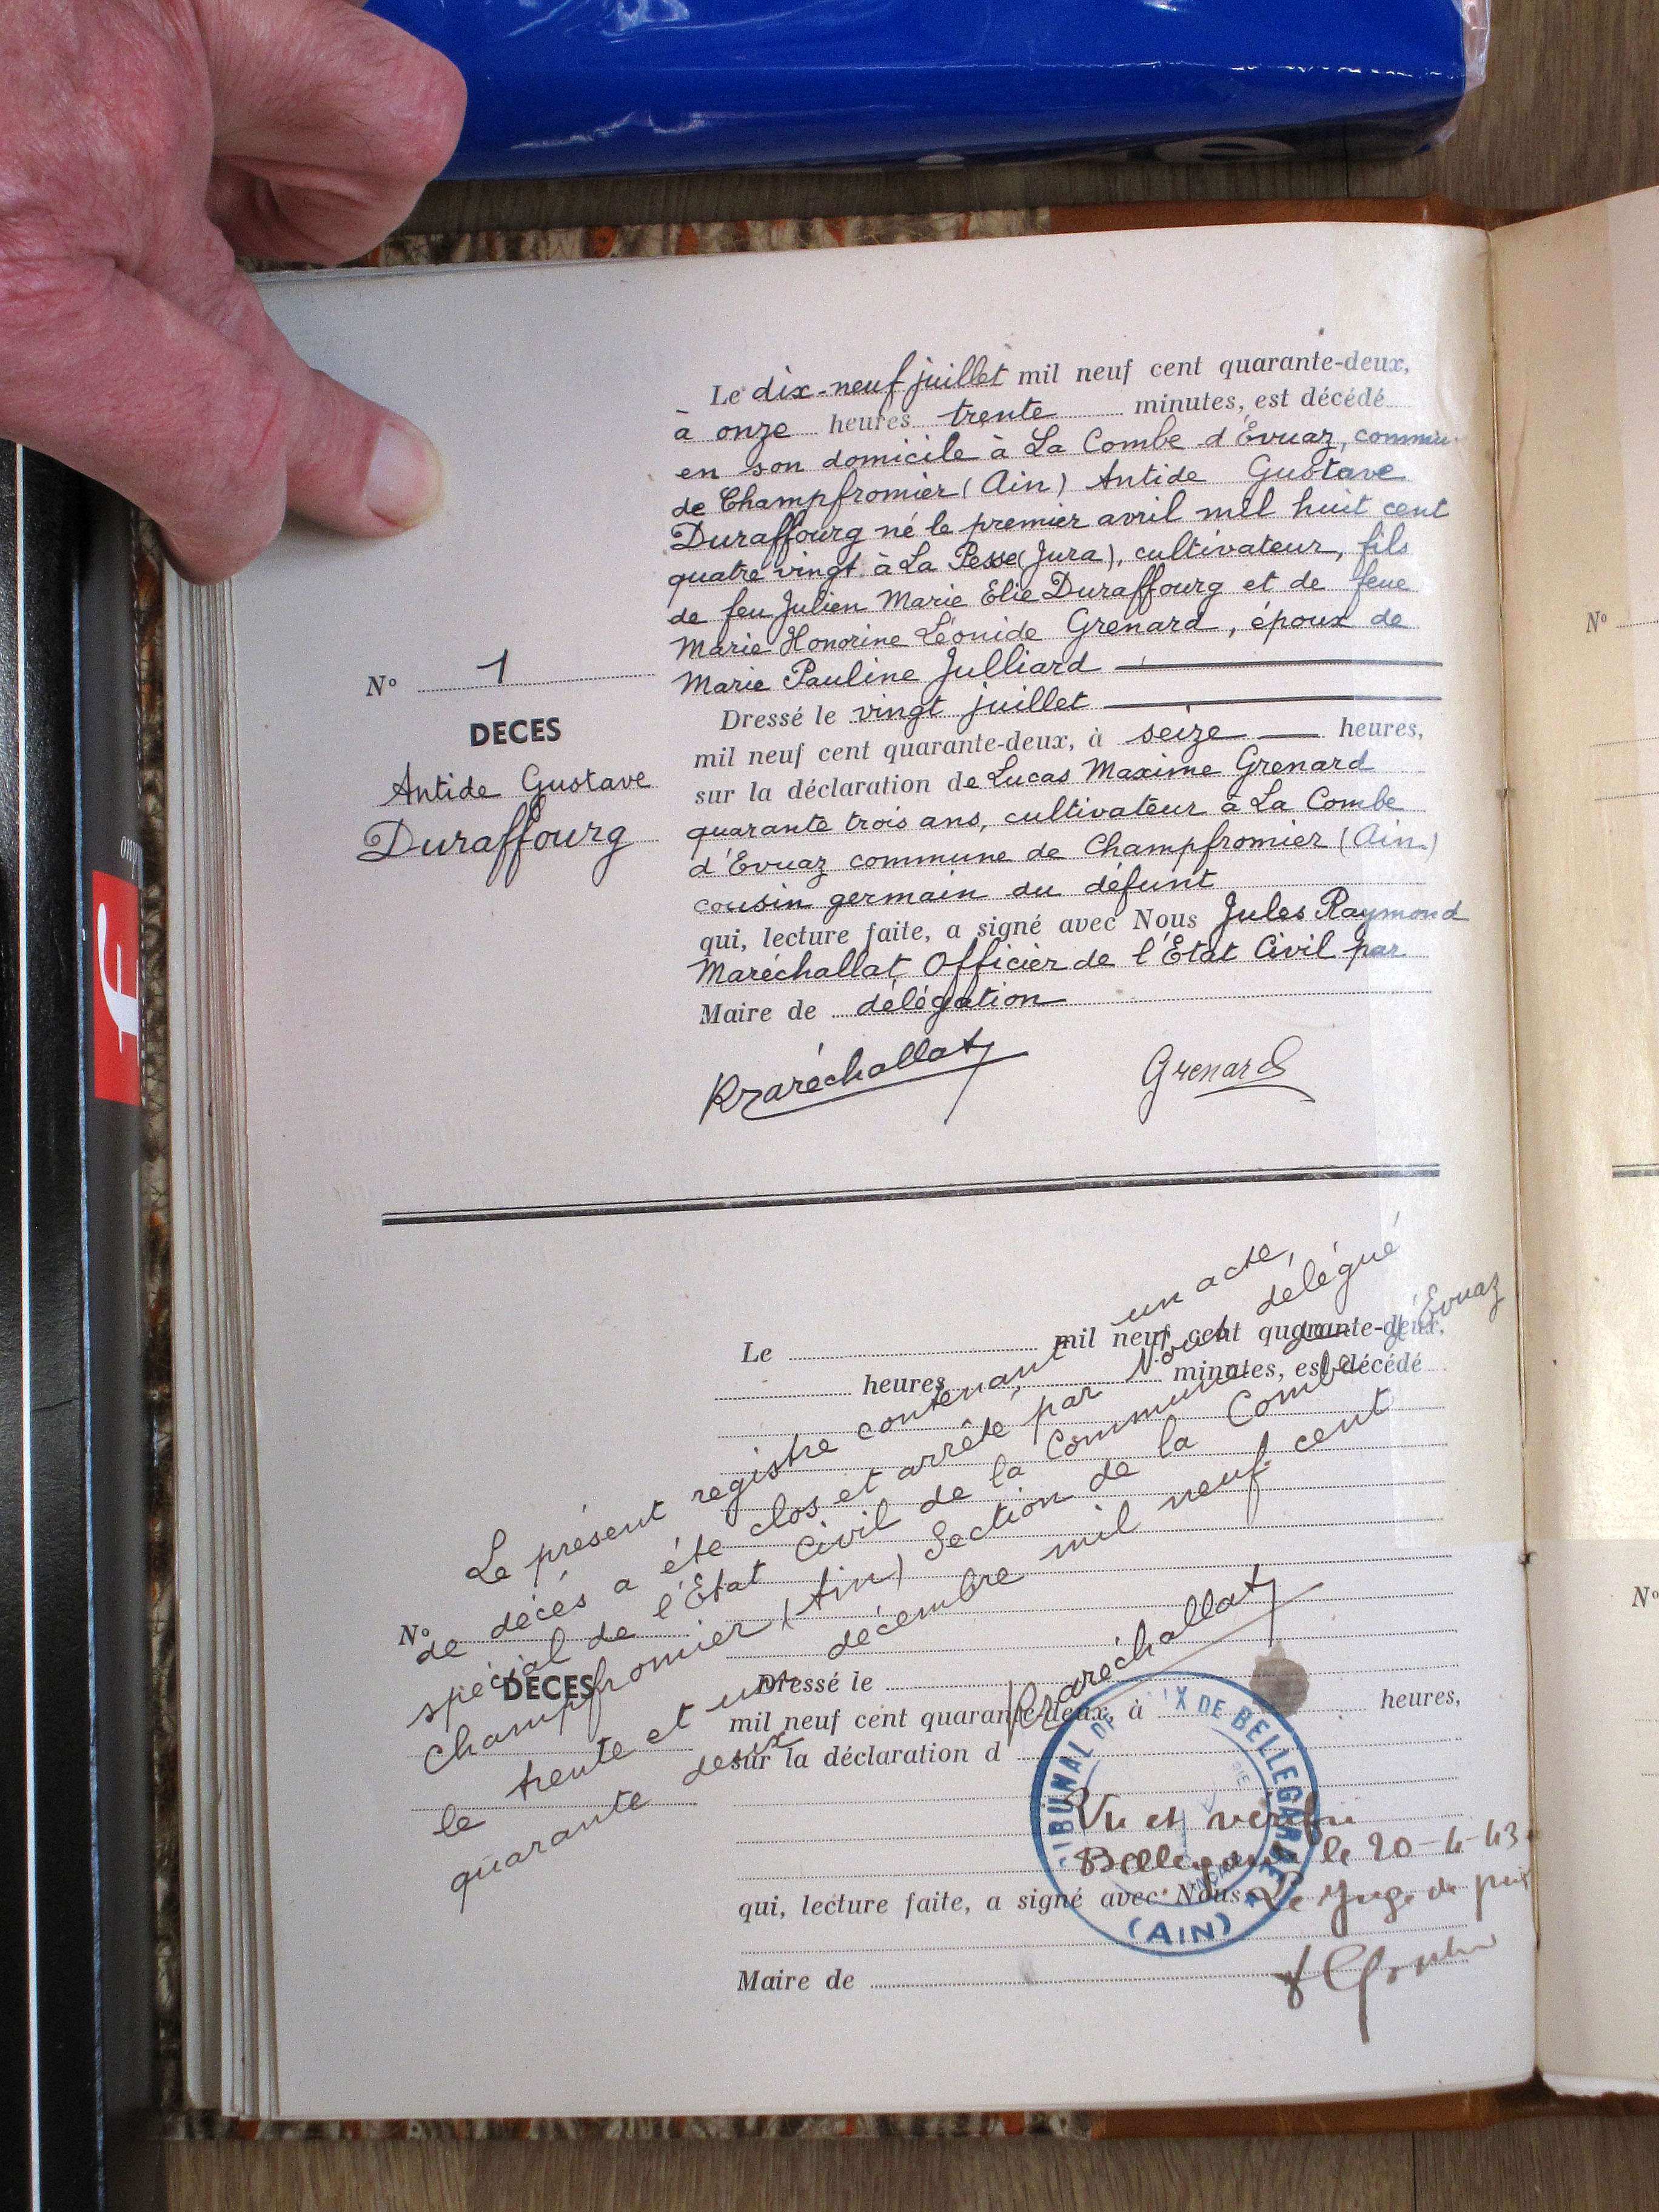 Le dix-neuf juillet mil neuf cent quarante-deux,
à onze heures trente minutes, est décédé
en son domicile à La Combe d'Évuaz, commu
de Champfromier (Ain) Antide Gustave
Duraffourg né le premier avril mil huit cent
quatre vingt à La Pesse (Jura), cultivateur, fils
de feu Julien Marie Elie Duraffourg et de feue
Marie Honorine Léonide Grenard, époux de
Marie Pauline Julliard
N° 1
DECES
Antide Gustave
Duraffourg
Dressé le vingt juillet
mil neuf cent quarante-deux, à seize heures,
sur la déclaration de Lucas Maxime Grenard
quarante trois ans, cultivateur à La Combe
d'Evuaz commune de Champfromier (Ain)
cousin germain du défunt
qui, lecture faite, a signé avec Nous Jules Raymond
Maréchallat Officier de l'Etat Civil par
Maire de délégation
Rmaréchallat
Grenard
Le mil neuf cent quarante-deux,
heures minutes, est décédé
Le présent registre contenant un acte,
de décés a été clos et arrêté par Nous délégué
spécial de l'Etat Civil de la Commune de
Champfromier (Ain) Section de la Combe d'Évuaz
le trente et un décembre mil neuf cent
quarante deux
Rmaréchallat
N°
DECES
Dressé le
mil neuf cent quarante-deux, à heures,
sur la déclaration d
TRIBUNAL DE PAIX DE BELLEGARDE
(AIN)
Vu et vérifié
Bellegarde le 20-4-43
Le Juge de paix
qui, lecture faite, a signé avec Nous
Maire de
N°
N°